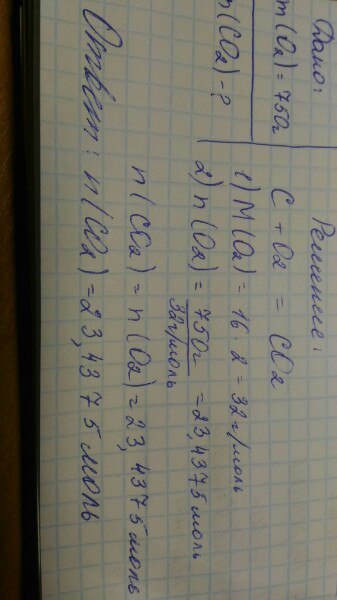 Дано:
m(O2) = 750г
n(CO2) - ?
Решение:
C + O2 = CO2
1) M(O2) = 16 · 2 = 32 г/моль
2) n(O2) = 750г / 32г/моль = 23,4375 моль
n(CO2) = n(O2) = 23,4375 моль
Ответ: n(CO2) = 23,4375 моль